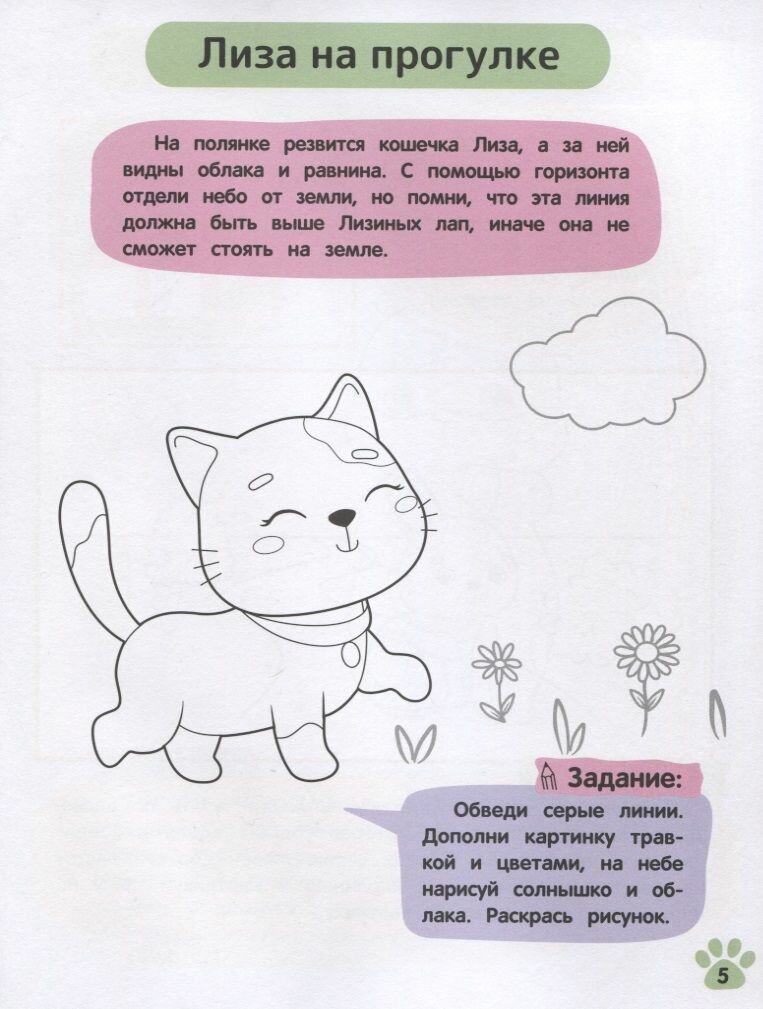 Лиза на прогулке
На полянке резвится кошечка Лиза, а за ней
видны облака и равнина. С помощью горизонта
отдели небо от земли, но помни, что эта линия
должна быть выше Лизиных лап, иначе она не
сможет стоять на земле.
Задание:
Обведи серые линии.
Дополни картинку трав-
кой и цветами, на небе
нарисуй солнышко и об-
лака. Раскрась рисунок.
5